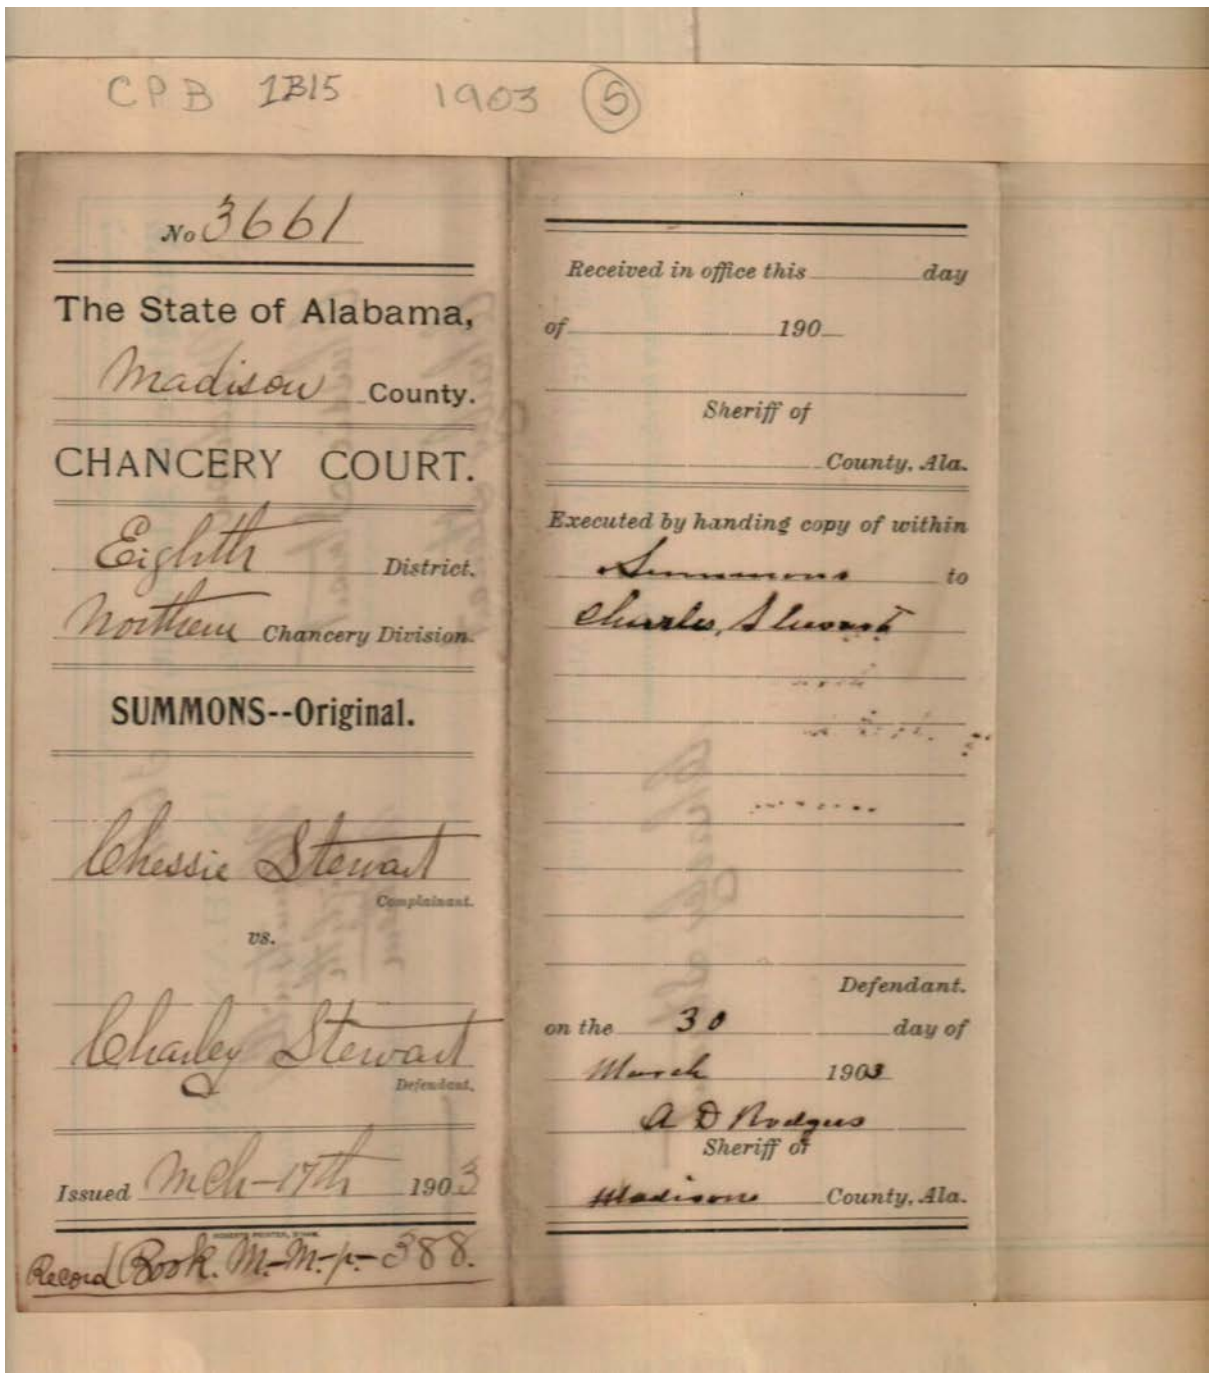 CPB 1B15 1903 5
No 3661
The State of Alabama,
Madison County.
CHANCERY COURT.
Eighth District.
Northern Chancery Division.
SUMMONS--Original.
Chessie Stewart
Complainant.
vs.
Charley Stewart
Defendant.
Issued Mch-17th 1903
Record Book. M.-M.-p.-388.
Received in office this day
of 190
Sheriff of
County, Ala.
Executed by handing copy of within
Summons to
Charles, Stewart
Defendant.
on the 30 day of
March 1903
A D Rodgers
Sheriff of
Madison County, Ala.